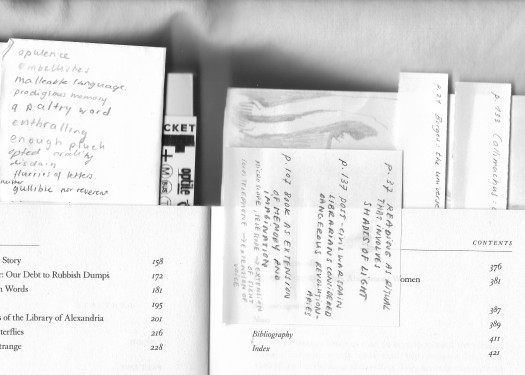 opulence
embellished
malleable language
prodigious memory
a paltry word
enthralling
enough pluck
opted orality
disdain
flurries of letters
neither
gullible nor reverent
CKET
p. 37 READING AS RITUAL
THAT INVOLVES
SHADES OF LIGHT
p. 137 POST-CIVIL WAR SPAIN
LIBRARIANS CONSIDERED
DANGEROUS REVOLUTION-
ARIES
p. 107 BOOK AS EXTENSION
OF MEMORY AND
IMAGINATION
MICROSCOPE, TELESCOPE → EXTENSION
OF SIGHT
→ EXTENSION OF
VOICE
p. 27 Borges the universe
p. 133 Callimachus:
Story 158
r: Our Debt to Rubbish Dumps 172
n Words 181
195
s of the Library of Alexandria 201
tterflies 216
trange 228
CONTENTS
376
omen 381
387
389
Bibliography 411
Index 421